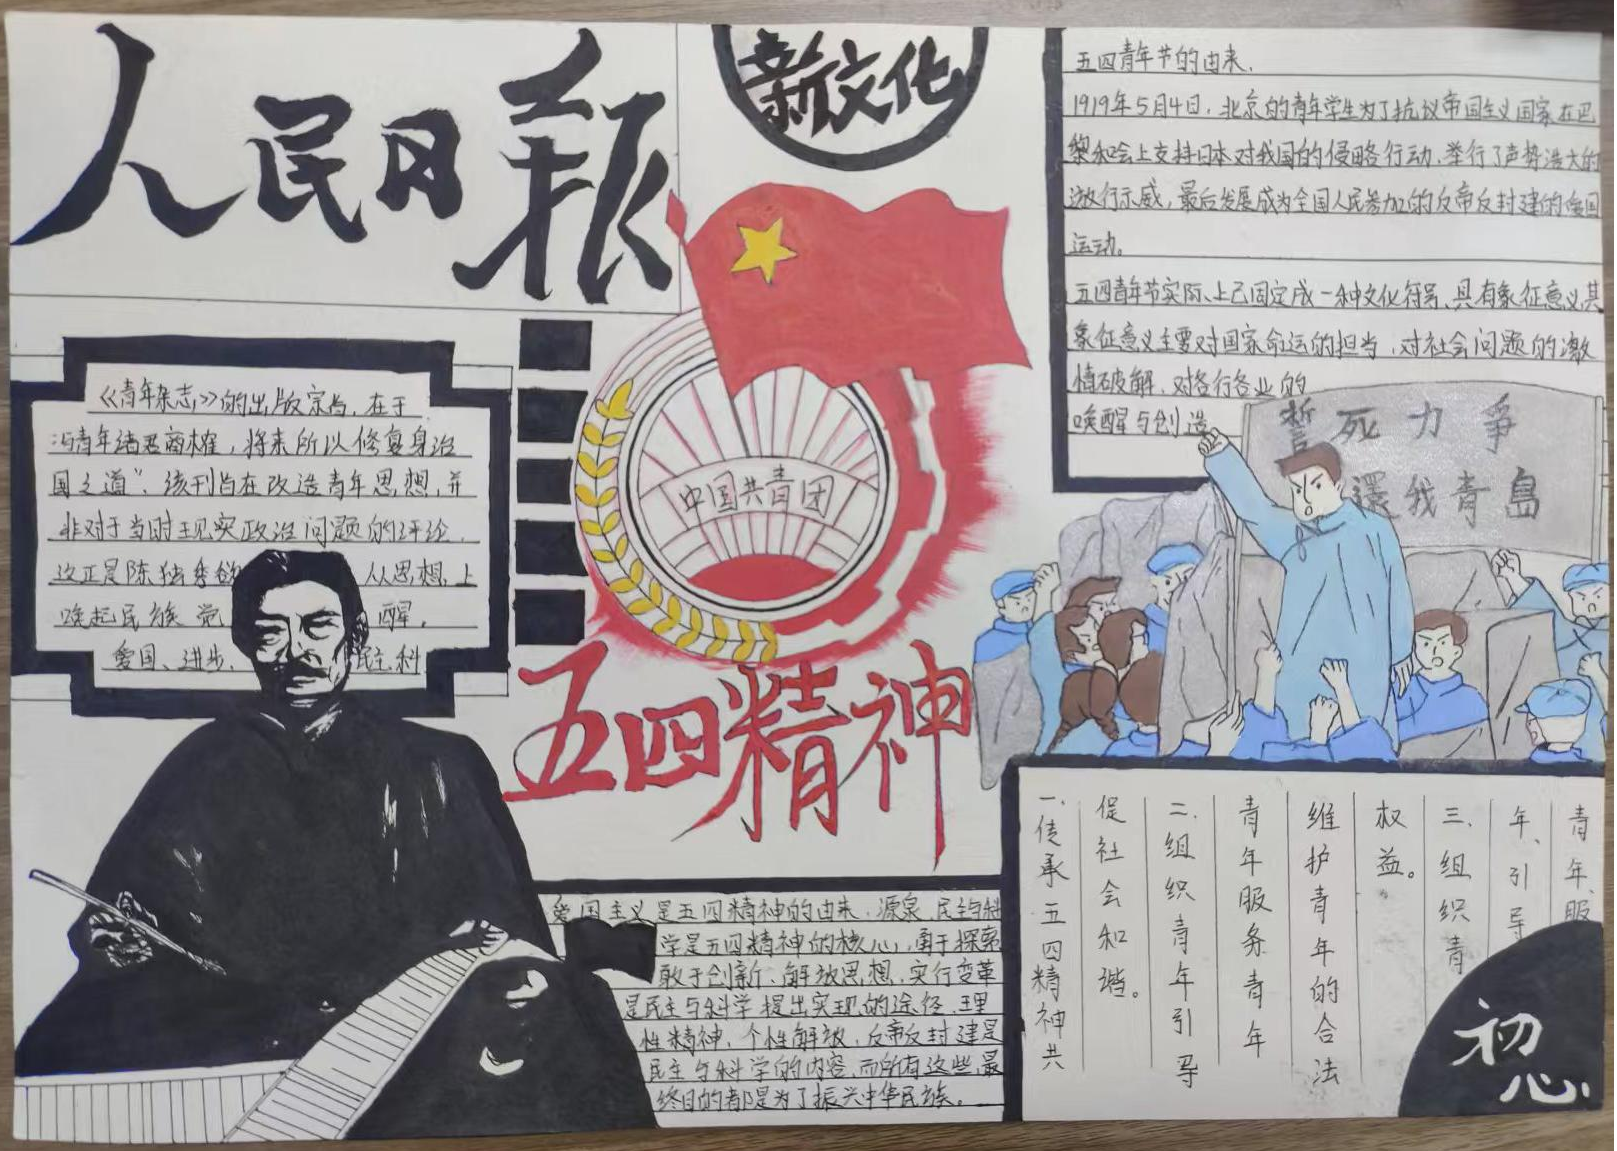 人民日报
新文化
五四青年节的由来.
1919年5月4日,北京的青年学生为了抗议帝国主义国家在巴
黎和会上支持日本对我国的侵略行动,举行了声势浩大的
游行示威,最后发展成为全国人民参加的反帝反封建的爱国
运动。
五四青年节实际上已固定成一种文化符号,具有象征意义,其
象征意义主要对国家命运的担当,对社会问题的激
情破解,对各行各业的
唤醒与创造
誓死力争
還我青島
《青年杂志》的出版宗旨,在于
与青年诸君商榷,将来所以修复身治
国之道".该刊旨在改造青年思想,并
非对于当时现实政治问题的评论.
这正是陈独秀欲 从思想上
唤起民族觉 醒.
爱国、进步、 民主,科
中国共青团
五四精神
爱国主义是五四精神的由来.源泉,民主与科
学是五四精神的核心,勇于探索
敢于创新、解放思想,实行变革
是民主与科学提出实现的途径.理
性精神,个性解放,反帝反封建是
民主与科学的内容,而所有这些,最
终目的都是为了振兴中华民族。
一.传承五四精神共
促社会和谐。
二.组织青年引导
青年服务青年
维护青年的合法
权益。
三.组织青
年、引导
青年、服
初心